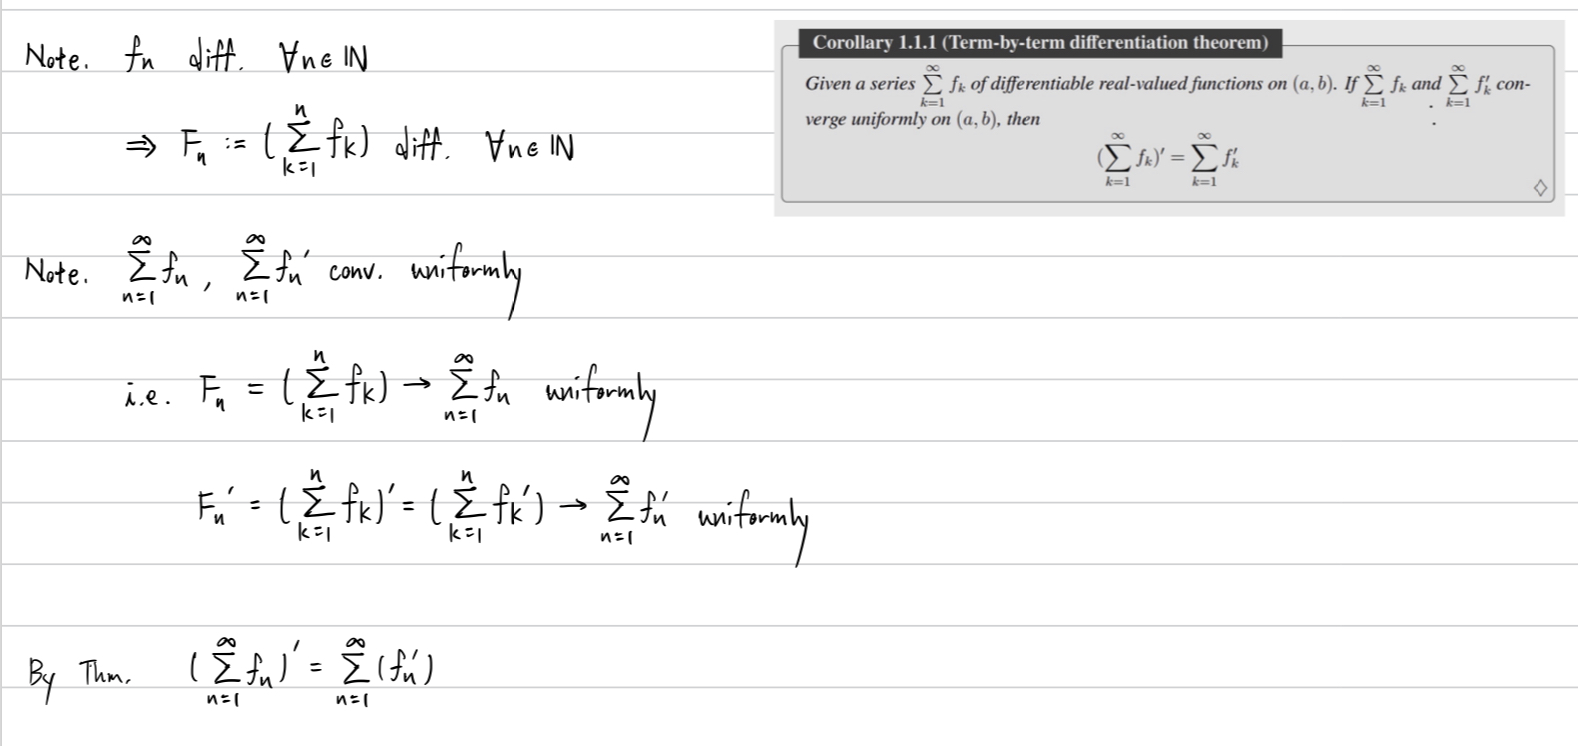 Note. fn diff. ∀n∈ℕ
⇒ Fn := (∑_{k=1}^{n} fk) diff. ∀n∈ℕ
Corollary 1.1.1 (Term-by-term differentiation theorem)
Given a series ∑_{k=1}^{∞} fk of differentiable real-valued functions on (a, b). If ∑_{k=1}^{∞} fk and ∑_{k=1}^{∞} f′k con-
verge uniformly on (a, b), then
(∑_{k=1}^{∞} fk)′ = ∑_{k=1}^{∞} f′k
◇
Note. ∑_{n=1}^{∞} fn, ∑_{n=1}^{∞} fn′ conv. uniformly
i.e. Fn = (∑_{k=1}^{n} fk) → ∑_{n=1}^{∞} fn uniformly
Fn′ = (∑_{k=1}^{n} fk)′ = (∑_{k=1}^{n} fk′) → ∑_{n=1}^{∞} fn′ uniformly
By Thm. (∑_{n=1}^{∞} fn)′ = ∑_{n=1}^{∞} (fn′)